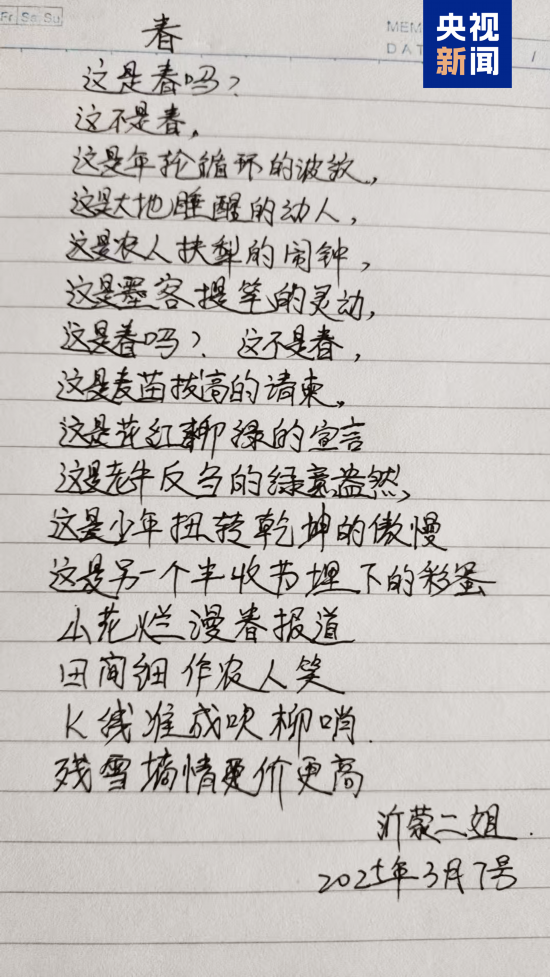 Fr Sa Su
MEM
DAT /
央视
新闻
春
这是春吗？
这不是春，
这是年轮循环的波纹，
这是大地睡醒的动人，
这是农人扶犁的闹钟，
这是墨客提笔的灵动，
这是春吗？ 这不是春，
这是麦苗拔高的请柬，
这是花红柳绿的宣言
这是老牛反刍的绿意盎然，
这是少年扭转乾坤的傲慢
这是另一个半收书埋下的彩蛋
山花烂漫春报道
田间细作农人笑
K线准成吹柳哨
残雪墒情更价更高
沂蒙二姐.
2025年3月7号